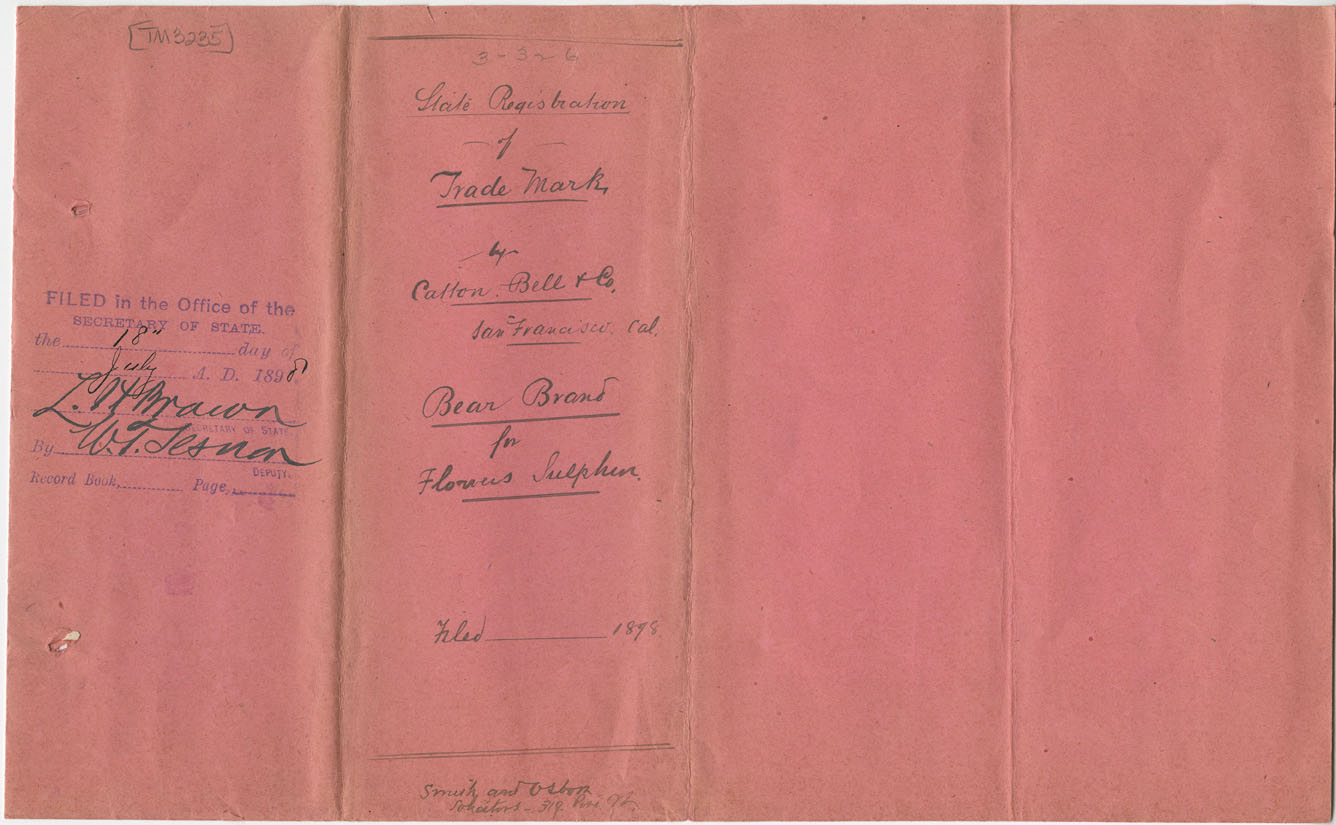 [TM3235]
FILED in the Office of the
SECRETARY OF STATE.
the 18" day of
July A. D. 1898
L. H. Brown
SECRETARY OF STATE.
By W. T.
DEPUTY.
Record Book, Page,
3-326
State Registration
of
Trade Mark,
by
Catton. Bell & Co,
San Francisco. Cal.
Bear Brand
for
Flowers Sulphur.
Filed 1898
Smith and Osborn
Solicitors - 319 Pine St